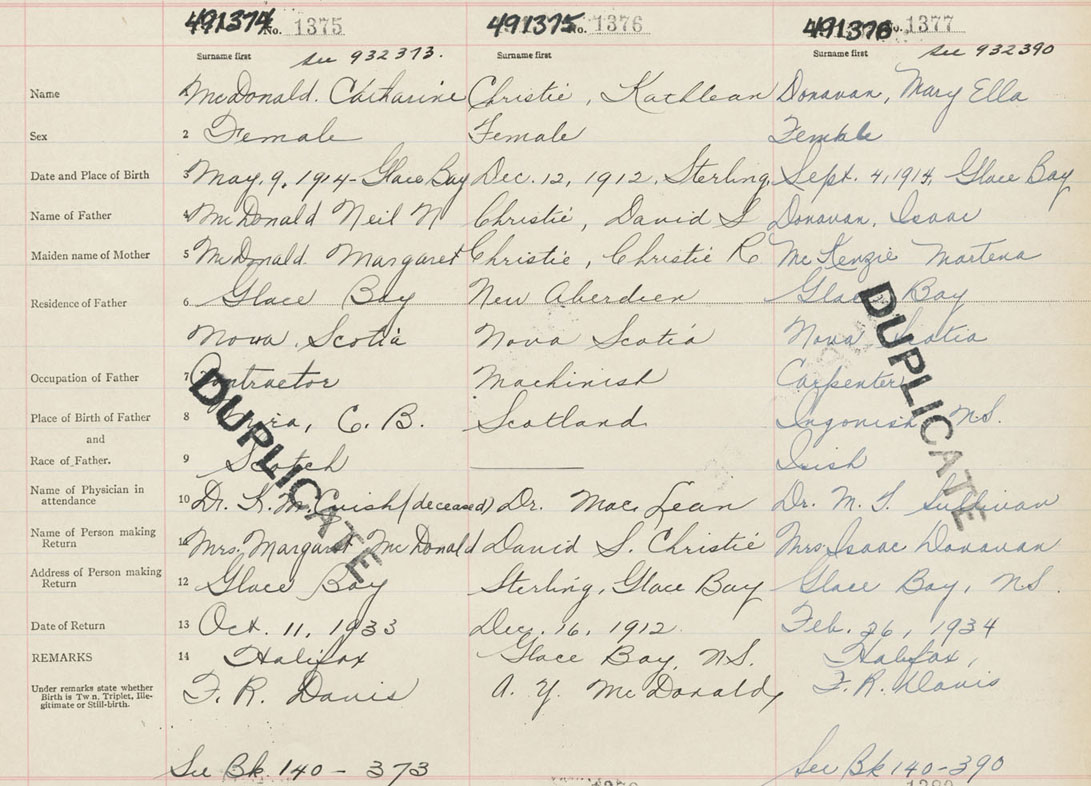 491374 No. 1375 491375 No. 1376 491376 No. 1377
Surname first see 932373. Surname first Surname first see 932390
Name 1 McDonald. Catharine Christie, Kathleen Donavan, Mary Ella
Sex 2 Female Female Female
Date and Place of Birth 3 May. 9, 1914 - Glace Bay Dec. 12, 1912, Sterling, Sept. 4, 1914, Glace Bay
Name of Father 4 McDonald Neil N Christie, David S Donavan, Isaac
Maiden name of Mother 5 McDonald Margaret Christie, Christie R McKenzie Martena
Residence of Father 6 Glace Bay New Aberdeen Glace Bay
Nova Scotia Nova Scotia Nova Scotia
Occupation of Father 7 Contractor Machinist Carpenter
Place of Birth of Father 8 Mira, C. B. Scotland Ingonish N.S.
and
Race of Father. 9 Scotch Irish
Name of Physician in
attendance 10 Dr. K. McCuish (deceased) Dr. MacLean Dr. M. T. Sullivan
Name of Person making
Return 11 Mrs. Margaret McDonald David S. Christie Mrs Isaac Donavan
Address of Person making
Return 12 Glace Bay Sterling, Glace Bay Glace Bay, NS.
Date of Return 13 Oct. 11, 1933 Dec. 16, 1912 Feb. 26, 1934
REMARKS 14 Halifax Glace Bay, N.S. Halifax,
Under remarks state whether
Birth is Twin, Triplet, Ille-
gitimate or Still-birth. F. R. Davis A. Y. McDonald F. R. Davis
DUPLICATE DUPLICATE
See Bk 140 - 373 See Bk 140 - 390